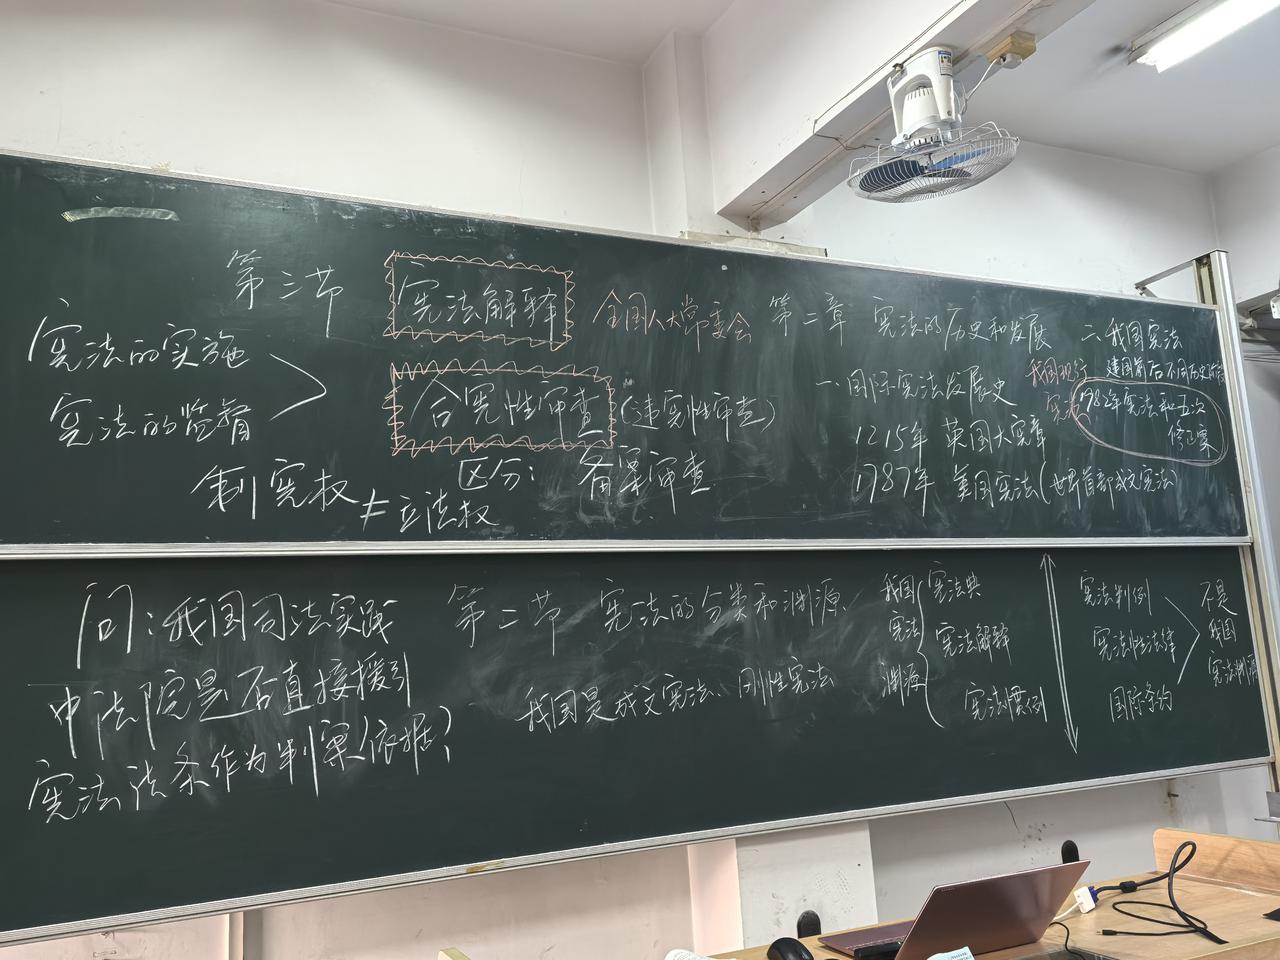 第三节 宪法解释 全国人大常委会
宪法的实施
宪法的监督
合宪性审查 (违宪性审查)
区分: 备案审查
制宪权 ≠ 立法权
第二章 宪法的历史和发展
一. 国际宪法发展史
1215年 英国大宪章
1987年 美国宪法(世界首部成文宪法)
二. 我国宪法
建国前后不同历史阶段
我国现行
宪法
1982年宪法和五次
修正案
问:我国司法实践
中法院是否直接援引
宪法法条作为判案依据?
第二节 宪法的分类和渊源
我国是成文宪法、刚性宪法
我国
宪法
渊源
宪法典
宪法解释
宪法惯例
宪法判例
宪法性法律
国际条约
不是
我国
宪法渊源